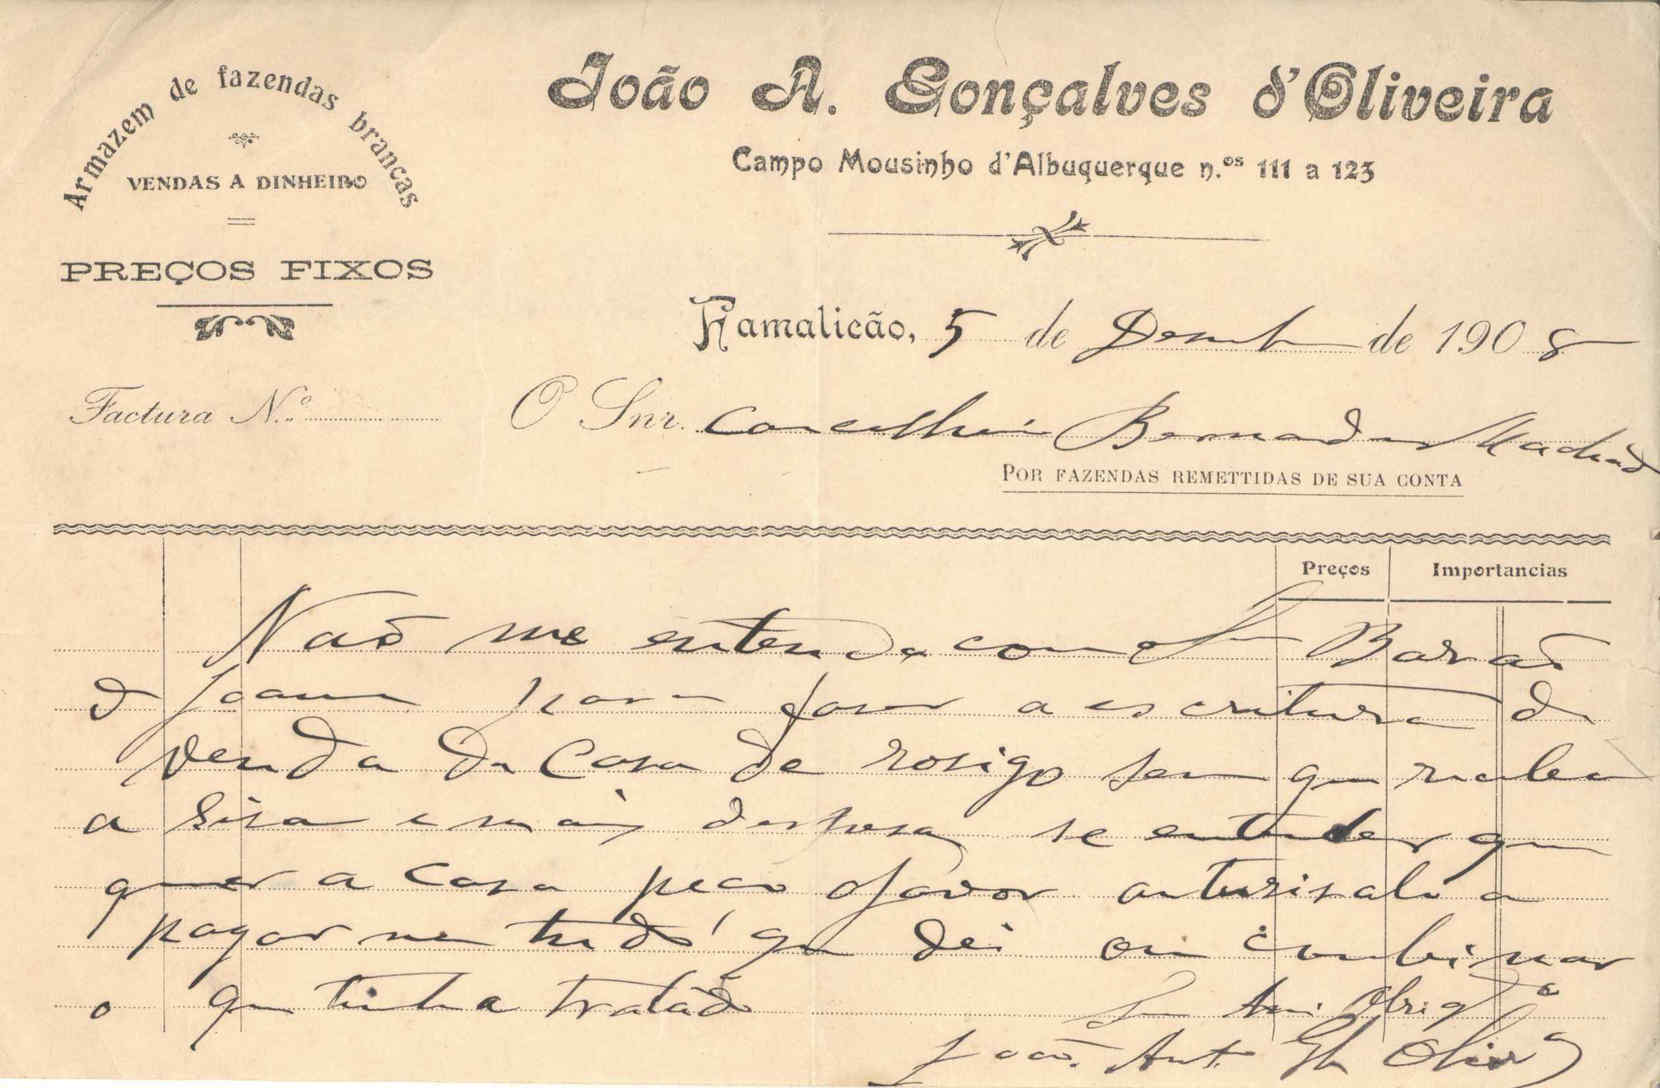 Armazem de fazendas brancas
VENDAS A DINHEIRO
PREÇOS FIXOS
João A. Gonçalves d'Oliveira
Campo Mousinho d'Albuquerque n.os 111 a 123
Famalicão, 5 de de 1908
Factura N.º
O Snr. Bernardino Machado
POR FAZENDAS REMETTIDAS DE SUA CONTA
Preços Importancias
Naõ me entendo com o Snr Baraõ
de Joane para faser a escritura da
venda da Casa de rosigo sem que
a sisa e mais despesa se entender que
quer a casa peço o favor autorisalo a
pagar me tudo que dei ou combinar
o que tinha tratado
Seu Obrigdo
João Ant. Glz Olivra